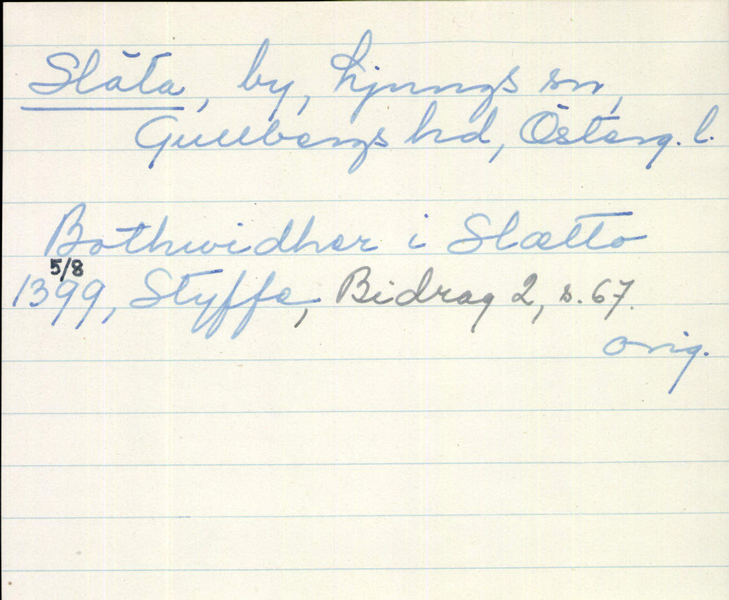 Släta, by, Ljungs sn,
Gullbergs hd, Österg. l.
Bothwidher i Slætto
5/8
1399, Styffe, Bidrag 2, s. 67.
orig.